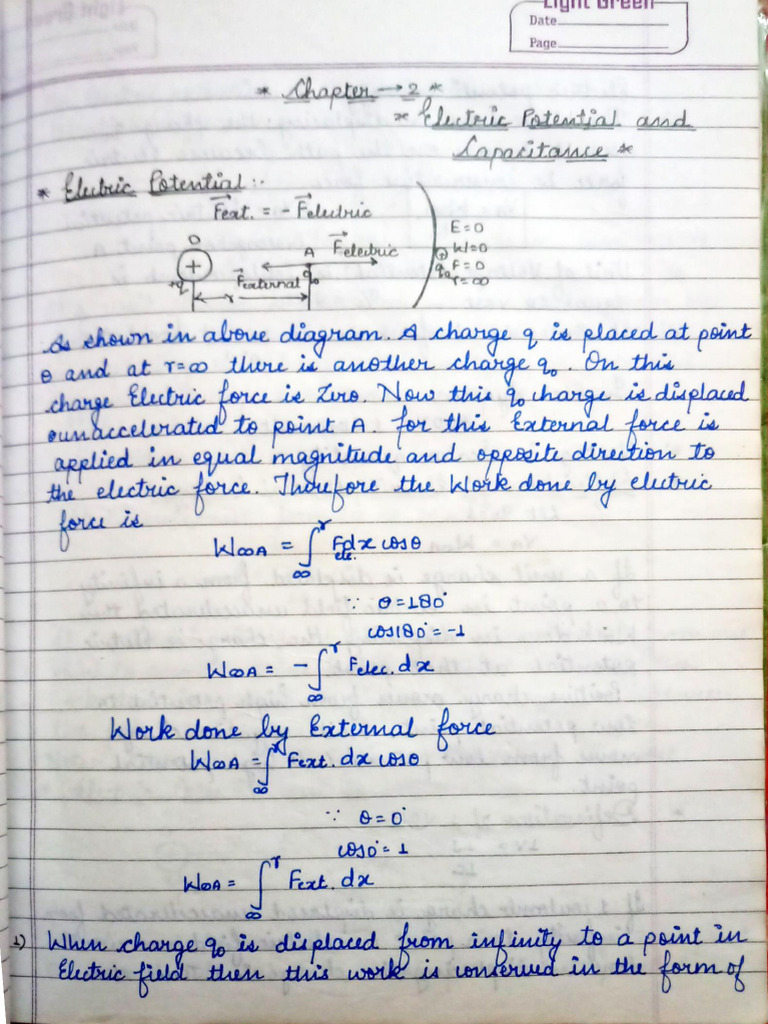 Light Green
Date
Page
* Chapter → 2 *
* Electric Potential and
Capacitance *
* Electric Potential :-
F⃗ext. = - F⃗electric
O A F⃗electric
+ F⃗external
q q₀
r
E=0
W=0
+ F=0
q₀ r=∞
As shown in above diagram. A charge q is placed at point
O and at r=∞ there is another charge q₀. On this
charge Electric force is Zero. Now this q₀ charge is displaced
unaccelerated to point A. for this External force is
applied in equal magnitude and opposite direction to
the electric force. Therefore the Work done by electric
force is
W∞A = ∫∞^r Felc. dx cosθ
∵ θ=180°
cos180°=-1
W∞A = - ∫∞^r Felec. dx
Work done by External force
W∞A = ∫∞^r Fext. dx cosθ
∵ θ=0°
cos0°=1
W∞A = ∫∞^r Fext. dx
1) When charge q₀ is displaced from infinity to a point in
Electric field then this work is conserved in the form of